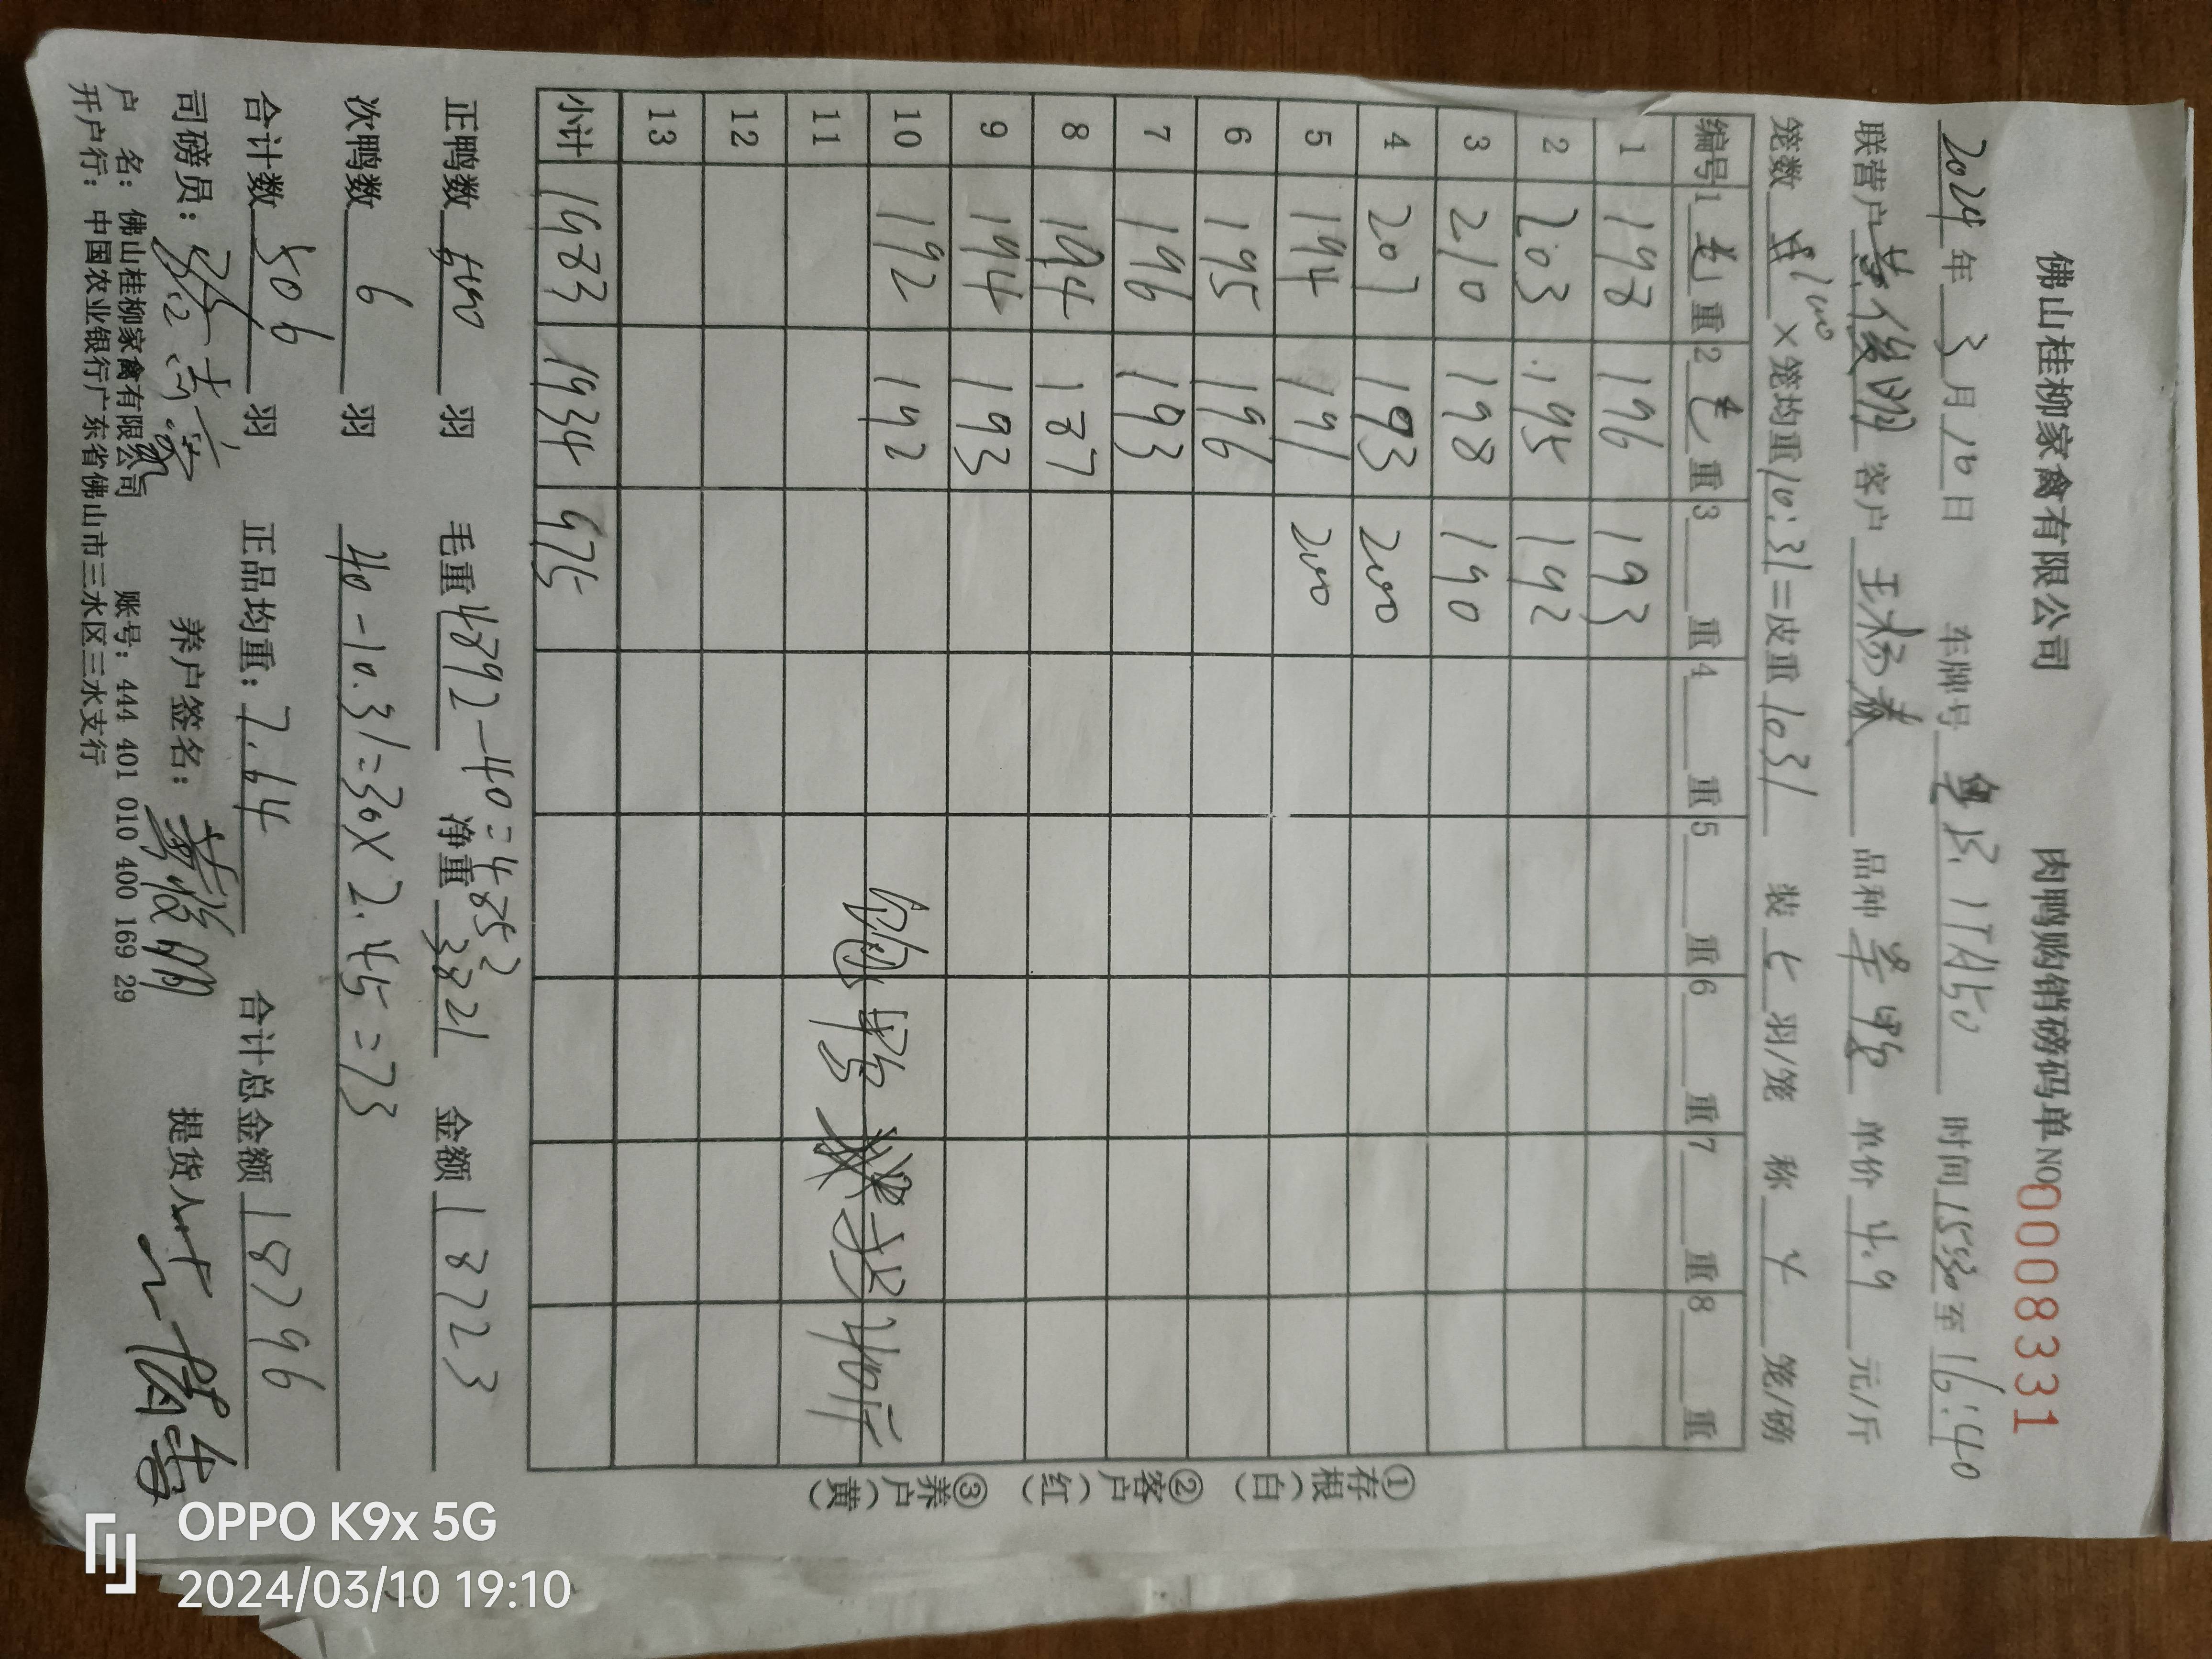 佛山桂柳家禽有限公司 肉鸭购销磅码单 NO 0008331
2024年3月10日 车牌号 粤 1TA50 时间 15:30 至 16:40
联营户 客户 王杨春 品种 单价 4.9 元/斤
笼数 100 ×笼均重 10.31 =皮重 1031 装 七 羽/笼 称 4 笼/磅
编号 1 毛 重 2 毛 重 3 重 4 重 5 重 6 重 7 重 8 重
1 198 196 193
2 203 195 192
3 210 198 190
4 207 193 200
5 194 191 200
6 195 196
7 196 193
8 194 187
9 194 193
10 192 192
11
12
13
小计 1983 1934 975
40斤
①存根(白) ②客户(红) ③养户(黄)
正鸭数 500 羽 毛重 4892-40=4852 净重 3821 金额 18723
次鸭数 6 羽 40-10.31=30×2.45=73
合计数 506 羽 正品均重: 7.64 合计总金额 18796
司磅员: 养户签名: 提货人:
户 名: 佛山桂柳家禽有限公司 账号: 444 401 010 400 169 29
开户行: 中国农业银行广东省佛山市三水区三水支行
OPPO K9x 5G
2024/03/10 19:10